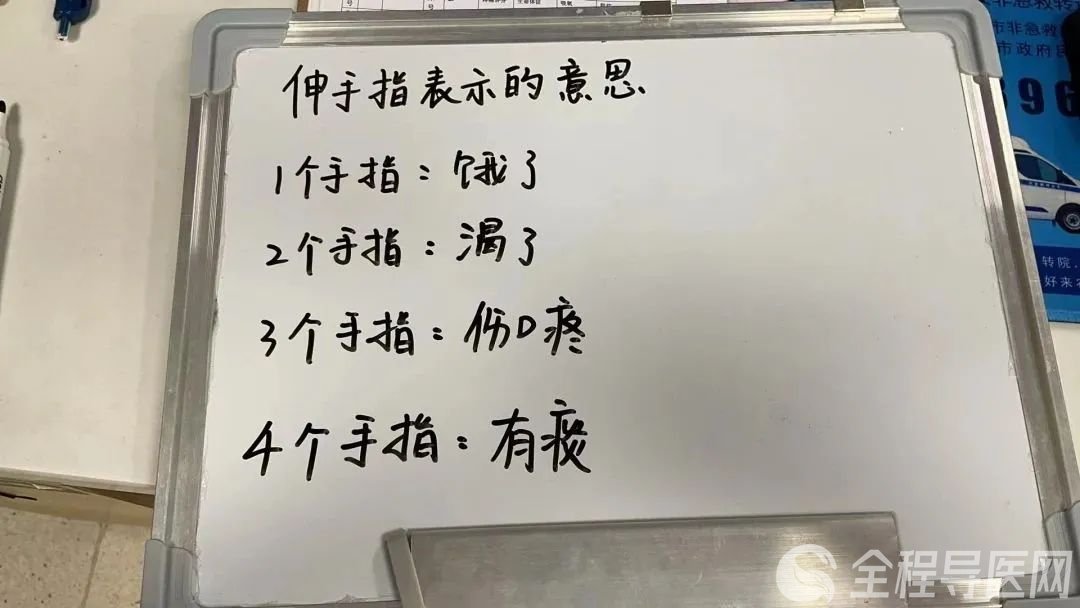 伸手指表示的意思
1个手指：饿了
2个手指：渴了
3个手指：伤口疼
4个手指：有痰
市非急救
市政府
96
转院
好来
全程导医网